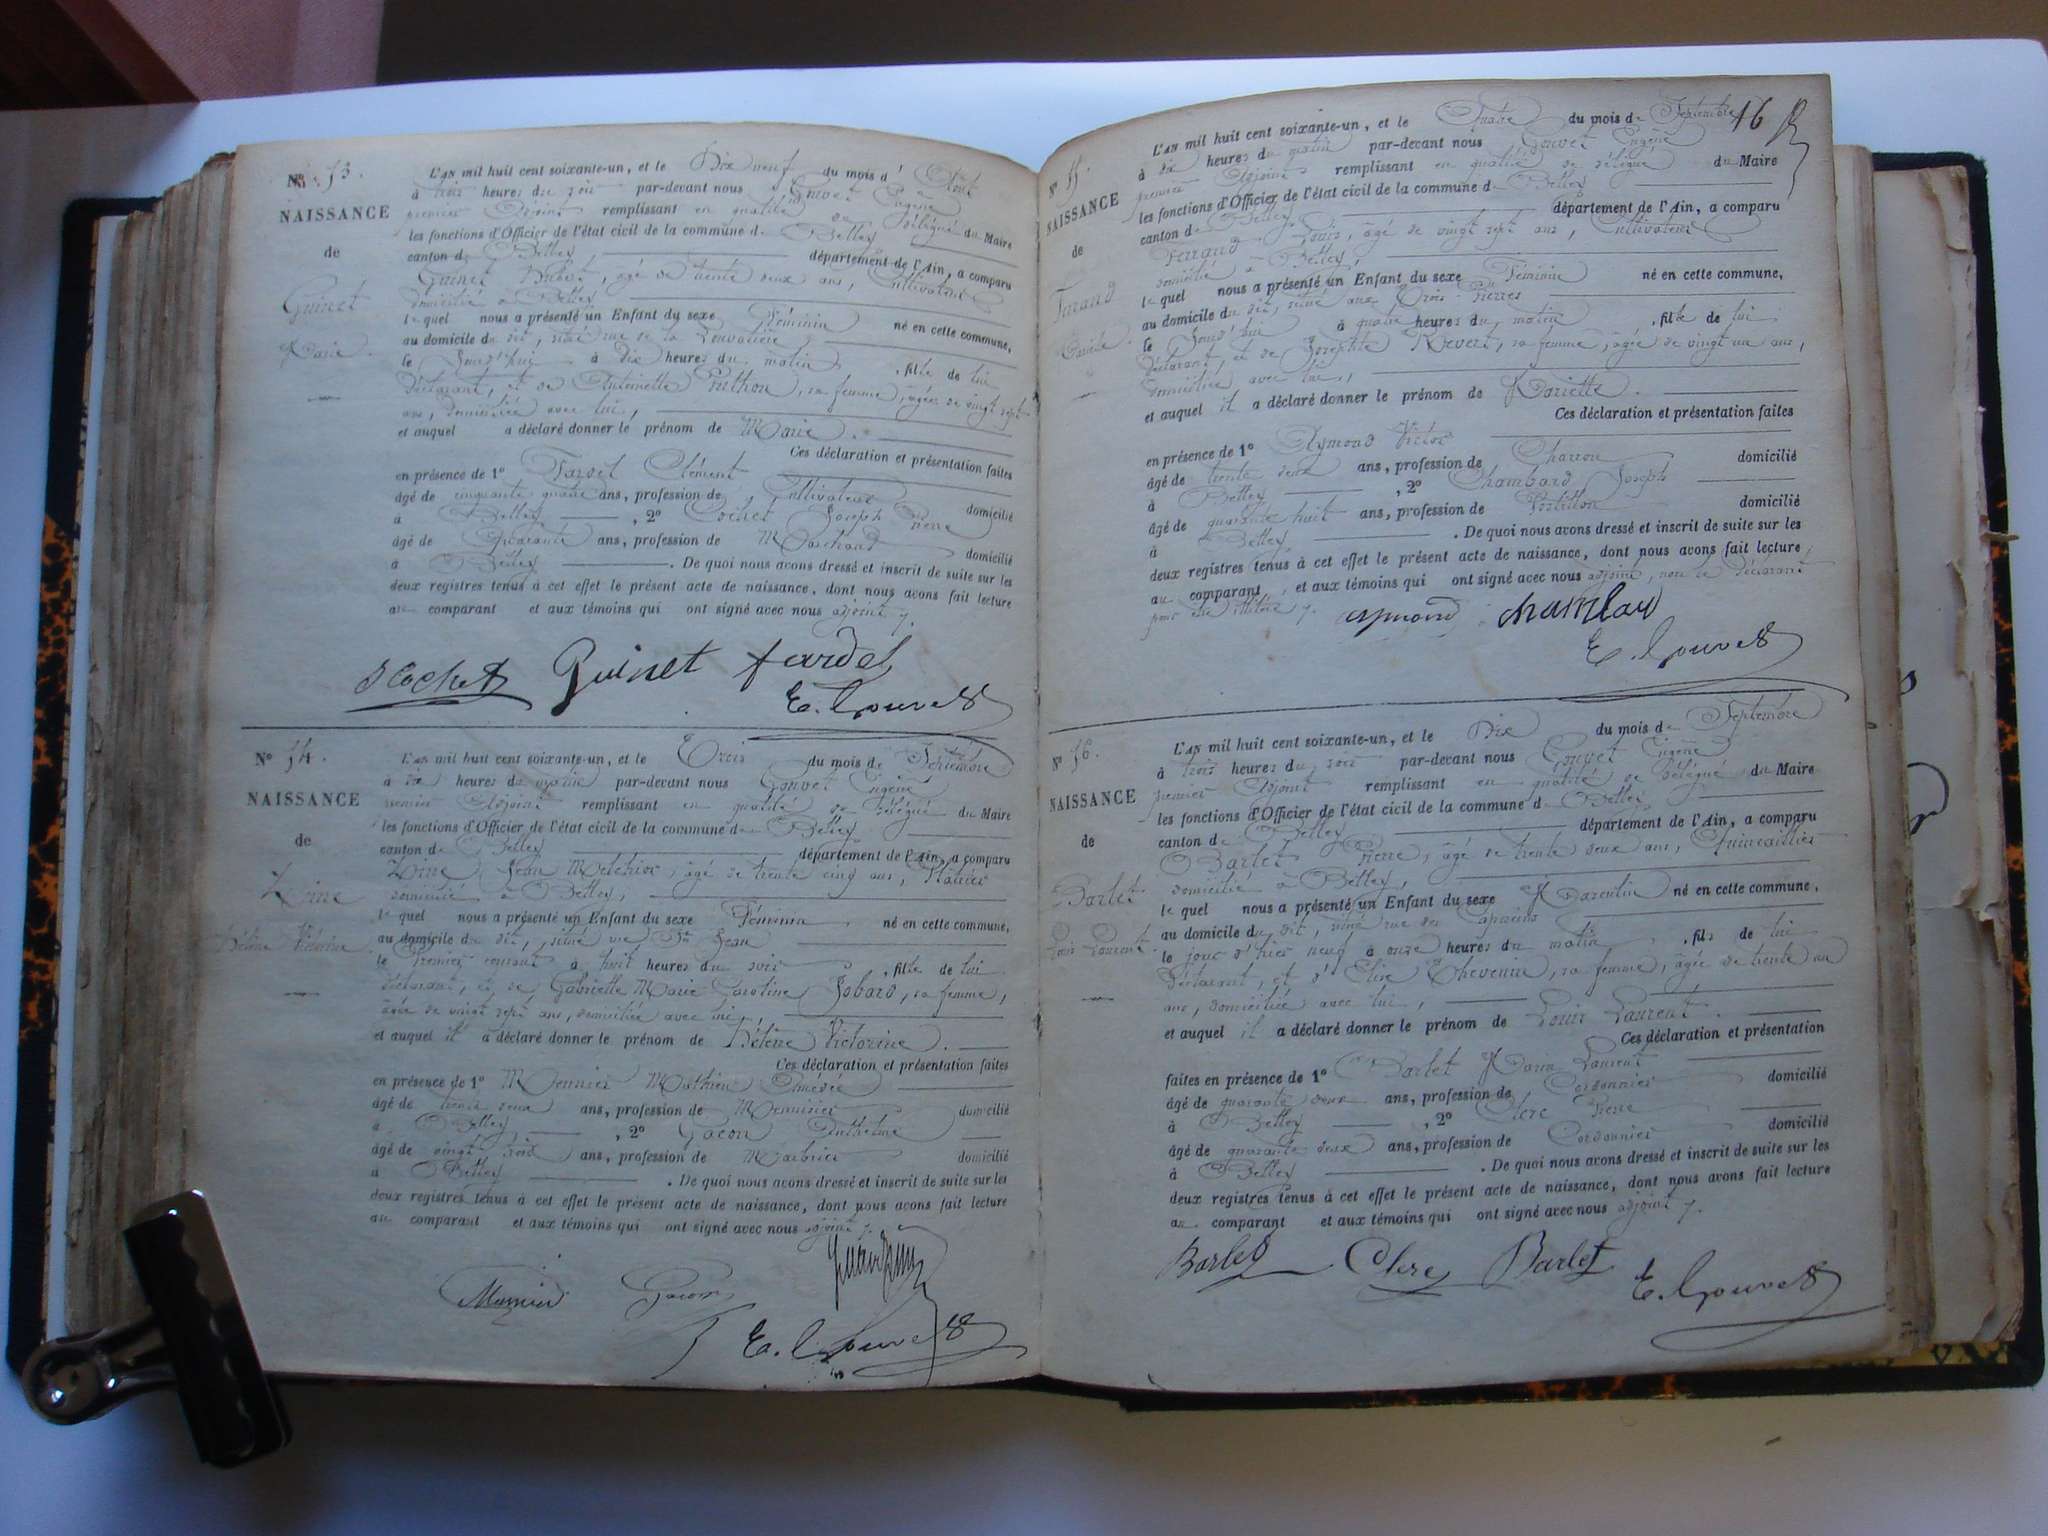 N° 53.
NAISSANCE
de
Guinet
Marie.
L'AN mil huit cent soixante-un, et le Dix neuf du mois d' Août
à trois heures du soir par-devant nous Gouvet Eugène
premier Adjoint remplissant en qualité de délégué du Maire
les fonctions d'Officier de l'état civil de la commune de Belley
canton de Belley, département de l'Ain, a comparu
Guinet, âgé de trente deux ans, Cultivateur
domicilié à Belley
lequel nous a présenté un Enfant du sexe Féminin né en cette commune,
au domicile du dit, situé rue de la
le Jourd'hui à dix heures du matin, fille de lui
déclarant, et de Antoinette, sa femme, âgée de vingt sept
ans, domiciliée avec lui,
et auquel a déclaré donner le prénom de Marie.
Ces déclaration et présentation faites
en présence de 1° Fardel Clément
âgé de cinquante quatre ans, profession de Cultivateur domicilié
à Belley, 2° Cochet Joseph Pierre
âgé de Quarante ans, profession de Marchand domicilié
à Belley. De quoi nous avons dressé et inscrit de suite sur les
deux registres tenus à cet effet le présent acte de naissance, dont nous avons fait lecture
au comparant et aux témoins qui ont signé avec nous adjoint
J Cochet Guinet fardel
E. Gouvet
N° 54.
NAISSANCE
de
Zine
Hélène Victorine
L'AN mil huit cent soixante-un, et le Trois du mois de Septembre
à dix heures du matin par-devant nous Gouvet Eugène
premier Adjoint remplissant en qualité de délégué du Maire
les fonctions d'Officier de l'état civil de la commune de Belley
canton de Belley département de l'Ain, a comparu
Zine Jean Melchior, âgé de trente cinq ans, Plâtrier
domicilié à Belley,
lequel nous a présenté un Enfant du sexe Féminin né en cette commune,
au domicile du dit, situé rue St Jean
le Premier courant à huit heures du soir, fille de lui
déclarant, et de Gabrielle Marie Caroline Jobard, sa femme,
âgée de vingt sept ans, domiciliée avec lui,
et auquel il a déclaré donner le prénom de Hélène Victorine.
Ces déclaration et présentation faites
en présence de 1° Mennier Mathieu Amédée
âgé de trente deux ans, profession de Menuisier domicilié
à Belley, 2° Gacon Anthelme
âgé de vingt trois ans, profession de Marbrier domicilié
à Belley. De quoi nous avons dressé et inscrit de suite sur les
deux registres tenus à cet effet le présent acte de naissance, dont nous avons fait lecture
au comparant et aux témoins qui ont signé avec nous adjoint
Gacon
E. Gouvet
16
N° 55.
NAISSANCE
de
Ferrand
Mariette.
L'AN mil huit cent soixante-un, et le Quatre du mois de Septembre
à dix heures du matin par-devant nous Gouvet Eugène
premier Adjoint remplissant en qualité de délégué du Maire
les fonctions d'Officier de l'état civil de la commune de Belley
canton de Belley département de l'Ain, a comparu
Ferrand Louis, âgé de vingt sept ans, Cultivateur
domicilié à Belley,
lequel nous a présenté un Enfant du sexe Féminin né en cette commune,
au domicile du dit, situé aux Trois Pierres
le Jourd'hui à quatre heures du matin, fille de lui
déclarant, et de Josephte Revert, sa femme, âgée de vingt un ans,
domiciliée avec lui,
et auquel il a déclaré donner le prénom de Mariette.
Ces déclaration et présentation faites
en présence de 1° Aymond Victor
âgé de trente deux ans, profession de Charron domicilié
à Belley, 2° Chambard Joseph
âgé de quarante huit ans, profession de Postillon domicilié
à Belley. De quoi nous avons dressé et inscrit de suite sur les
deux registres tenus à cet effet le présent acte de naissance, dont nous avons fait lecture
au comparant, et aux témoins qui ont signé avec nous adjoint, non le déclarant
pour être illitéré
aymond chambard
E. Gouvet
N° 56.
NAISSANCE
de
Barlet
Louis Laurent.
L'AN mil huit cent soixante-un, et le Dix du mois de Septembre
à trois heures du soir par-devant nous Gouvet Eugène
premier Adjoint remplissant en qualité de délégué du Maire
les fonctions d'Officier de l'état civil de la commune de Belley
canton de Belley département de l'Ain, a comparu
Barlet Pierre, âgé de trente deux ans, Quincaillier
domicilié à Belley,
lequel nous a présenté un Enfant du sexe Masculin né en cette commune,
au domicile du dit, situé rue des Capucins
le jour d'hier neuf à onze heures du matin, fils de lui
déclarant, et d'Elise Thevenin, sa femme, âgée de trente un
ans, domiciliée avec lui,
et auquel il a déclaré donner le prénom de Louis Laurent.
Ces déclaration et présentation
faites en présence de 1° Barlet Marin Laurent
âgé de quarante deux ans, profession de Cordonnier domicilié
à Belley, 2° Clerc Pierre
âgé de quarante deux ans, profession de Cordonnier domicilié
à Belley. De quoi nous avons dressé et inscrit de suite sur les
deux registres tenus à cet effet le présent acte de naissance, dont nous avons fait lecture
au comparant et aux témoins qui ont signé avec nous adjoint
Barlet Clerc Barlet
E. Gouvet